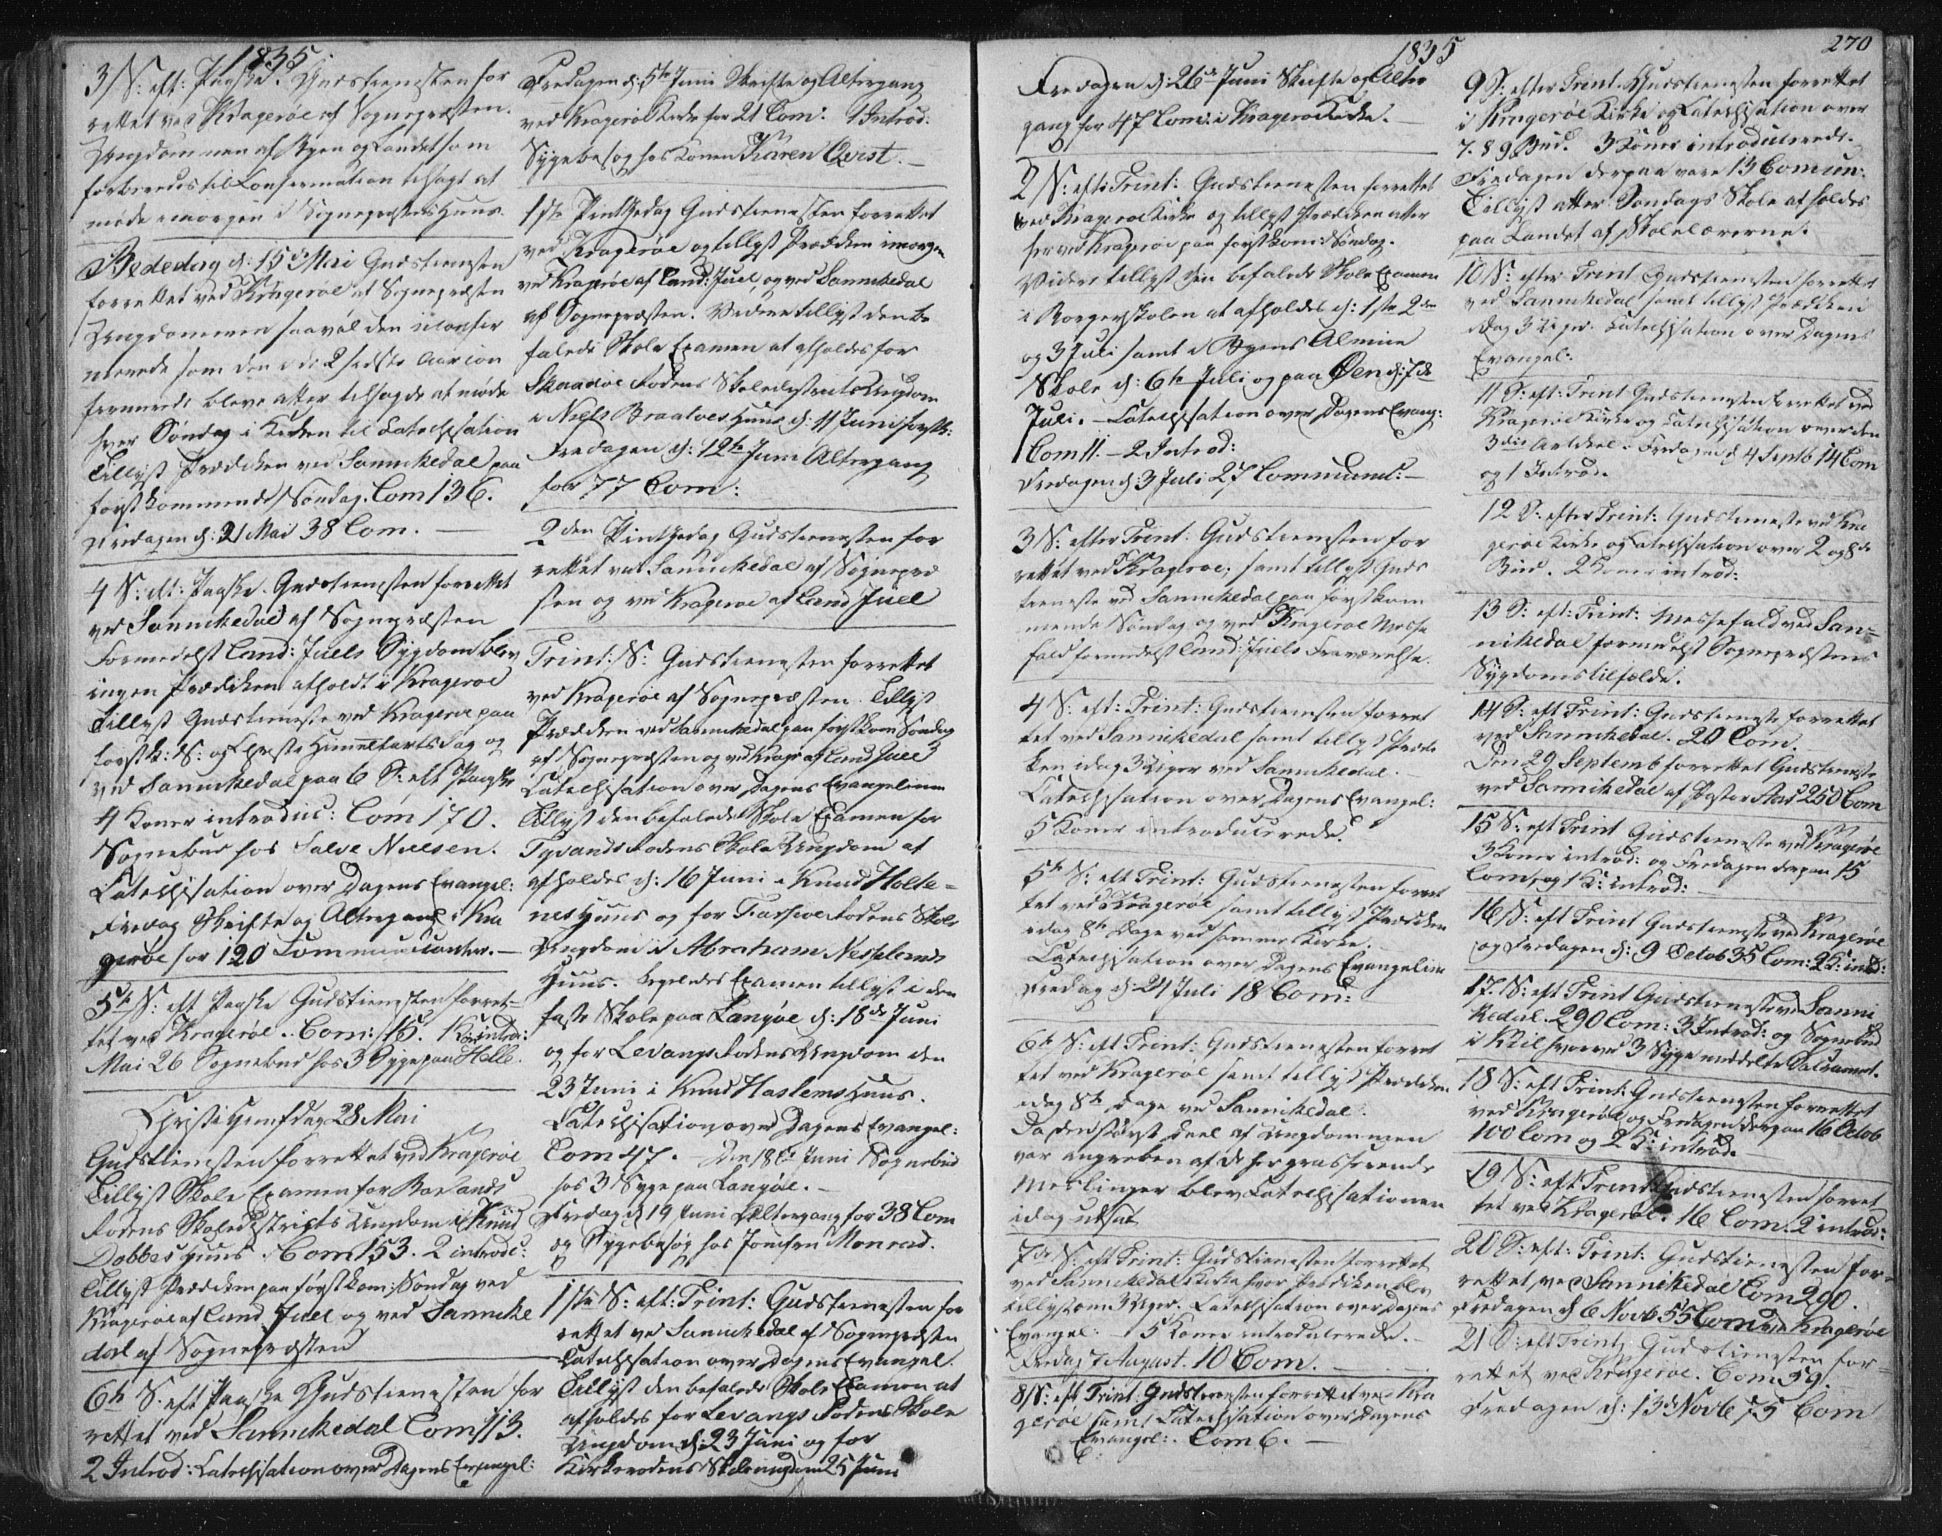 1835.
3 S: eft: Paaske. Gudstienesten for
rettet ved Kragerøe af Sognepræsten.
Ungdommen af Byen og Landet som
forberedes til Confirmation tilsagt at
møde imorgen i Sognepræstens Huus.
Bededag d: 15de Mai Gudstienesten
forrettet ved Kragerøe af Sognepræsten
Ungdommen saavel den uconfir
merede som den i de 2 sidste Aar con
firmerede bleve atter tilsagde at møde
hver Søndag i Kirken til Catechisation
Tillyst Prædiken ved Sannikedal paa
førstkommende Søndag. Com 136.
Fredagen d: 21 Mai 38 Com. —
4 S: eft: Paaske. Gudstienesten forrettet
ved Sannikedal af Sognepræsten
Formedelst Cand: Juels Sygdom blev
ingen Prædiken afholdt i Kragerøe
Tillyst Gudstieneste ved Kragerøe paa
førstk: S: og Christi Himmelfarts Dag og
ved Sannikedal paa 6 S: eft Paaske
4 Koner introduc: Com 170.
Sognebud hos Salve Nielsen.
Catechisation over Dagens Evangel:
Fredag Skrifte og Altergang i Kra
gerøe for 120 Communicanter. —
5te S: eft Paaske Gudstienesten forret-
tet ved Kragerøe. Com: 15. 1 K: introd:
Mai 26 Sognebud hos 3 Syge paa Helle.
Christi Himf dag 28 Mai
Gudstienesten forrettet ved Kragerøe
Tillyst Skole Examen for Barlands
Rodens Skoledistricts Ungdom i Knud
Dobbes Huus. Com 153. 2 introdc:
Tillyst Prædiken paa førstkom: Søndag ved
Kragerøe af Cand Juel og ved Sannike
dal af Sognepræsten
6te S. eft Paaske Gudstienesten for
rettet ved Sannikedal Com 113.
2 Introd: Catechisation over Dagens Evangel:
Fredagen d: 5te Juni Skrifte og Altergang
ved Kragerøe Kirke for 21 Com: 1 Introd:
Sygebesøg hos Konen Karen Qvist. —
1ste Pintsedag Gudstienesten forrettet
ved Kragerøe og tillyst Prædiken imorgen
ved Kragerøe af Cand: Juel, og ved Sannikedal
af Sognepræsten. Videre tillyst den be
falede Skole Examen at afholdes for
Skaadøe Rodens Skoledistricts Ungdom
i Niels Braatøes Huus d: 11 Juni førstk:
Fredagen d: 12te Juni Altergang
for 77 Com:
2den Pintsedag Gudstienesten for
rettet ved Sannikedal af Sognepræ
sten og ved Kragerøe af Cand Juel
Trint: S: Gudstienesten forrettet
ved Kragerøe af Sognepræsten. Tillyst
Prædiken ved Sannikedal paa førstkom Søndag
af Sognepræsten og ved Kragerøe af Cand Juel
Catechisation over Dagens Evangelium
Tillyst den befalede Skole Examen for
Tyvands Rodens Skole Ungdom at
afholdes d: 16 Juni i Knud Holte-
nes Huus og for Farsjøe Rodens Skole
Ungdom i Abraham Nesselands
Huus. Ligeledes Examen tillyst i den
faste Skole paa Langøe d: 18de Juni
og for Levangs Rodens Ungdom den
23 Juni i Knud Haslems Huus.
Catechisation over Dagens Evangel:
Com 47. — Den 18te Juni Sognebud
hos 3 Syge paa Langøe. —
Fredag d 19 Juni Altergang for 38 Com
og Sygebesøg hos Jomfru Monrad.
1ste S: eft: Trint: Gudstienesten for
rettet ved Sannikedal af Sognepræsten
Catechisation over Dagens Evangel.
Tillyst den befalede Skole Examen at
afholdes for Levangs Rodens Skole
Ungdom d: 23 Juni og for
Kirkerodens Skoleungdom 25 Juni
1835
270
Fredagen d: 26de Juni Skrifte og Alter
gang for 47 Com: i Kragerøe Kirke. —
2 S: eft: Trint: Gudstienesten forrettet
ved Kragerøe Kirke og tillyst Prædiken atter
her ved Kragerøe paa førstkom: Søndag.
Videre tillyst den befalede Skole Examen
i Borgerskolen at afholdes d: 1ste 2den
og 3 Juli samt i Byens Almue
Skole d: 6te Juli og paa Øen d: 7de
Juli. — Catechisation over Dagens Evang:
Com 11. — 2 Introd:
Fredagen d: 3 Juli 27 Communi: —
3 S: efter Trint: Gudstienesten for
rettet ved Kragerøe, samt tillyst Guds
tieneste ved Sannikedal paa førstkom
mende Søndag og ved Kragerøe Messe
fald formedelst Cand: Juels Fraværelse.
4 S: eft: Trint: Gudstienesten forret
tet ved Sannikedal samt tillyst Prædi
ken idag 3 Uger ved Sannikedal. —
Catechisation over Dagens Evangel:
5 Koner introducerede.
5te S: eft Trint: Gudstienesten forret
tet ved Kragerøe samt tillyst Prædiken
idag 8te Dage ved samme Kirke.
Catechisation over Dagens Evangelium
Fredag d: 21 Juli 18 Com:
6te S: eft Trint: Gudstienesten forret
tet ved Kragerøe samt tillyst Prædiken
idag 8te Dage ved Sannikedal.
Da den største Deel af Ungdommen
var angreben af de her grasserende
Meslinger blev Catechisationen
idag udsat
7de S: eft Trint: Gudstienesten forrettet
ved Sannikedals Kirke hvor Prædiken blev
tillyst om 3 Uger. Catechisation over Dagens
Evangel: 5 Koner introducerede. —
Fredag 7 August. 10 Com. —
8 S: eft Trint: Gudstienesten forrettet ved Kra
gerøe samt Catechisation over Dagens
Evangel: Com 6. —
9 S: efter Trint. Gudstienesten forrettet
i Kragerøe Kirke og Catechisation over
7. 8 9 Bud. 3 Koner introducerede.
Fredagen derpaa vare 13 Comun:
Tillyst atter Søndags Skole afholdes
paa Landet af Skolelærerne.
10 S: efter Trint Gudstienesten forrettet
ved Sannikedal samt tillyst Prædiken
idag 3 Uger. Catechisation over Dagens
Evangel:
11 S: eft: Trint Gudstienesten forrettet ved
Kragerøe Kirke og Catechisation over den
3die Artikel. Fredagen d 4 Septb 14 Com
og 1 Introd.
12 S: efter Trint: Gudstieneste ved Kra
gerøe Kirke og Catechisation over 2 og 8de
Bud. 2 Koner introd:
13 S: eft: Trint: Messefald ved San-
nikedal formedelst Sognepræstens
Sygdomstilfælde.
14 S: eft Trint: Gudstieneste forrettet
ved Sannikedal. 20 Com.
Den 29 Septemb forrettet Gudstieneste
ved Sannikedal af Pastor Aas 250 Com
15 S: eft Trint Gudstieneste ved Kragerøe
3 Koner introd: og Fredagen derpaa 15
Com, og 1 K: introd:
16 S: eft Trint Gudstieneste ved Kragerøe
og Fredagen d: 9 Octob 35 Com: 2 K: introd:
17. S: eft Trint Gudstieneste ved Sanni
kedal. 290 Com: 3 Introd: og Sognebud
i Kiil hvorved 3 Syge meddeltes Sacrament.
18 S: eft Trint: Gudstienesten forrettet
ved Kragerøe og Fredagen derpaa 16 Octob
100 Com og 2 K: introd.
19 S: eft Trint Gudstienesten forret
tet ved Kragerøe. 16 Com. 2 introd:
20 S: eft: Trint: Gudstienesten for-
rettet ved Sannikedal Com 290.
Fredagen d 6 Novb 55 Com ved Kragerøe
21 S: eft Trint: Gudstienesten for-
rettet ved Kragerøe. Com 59.
Fredagen d: 13de Novb 75 Com